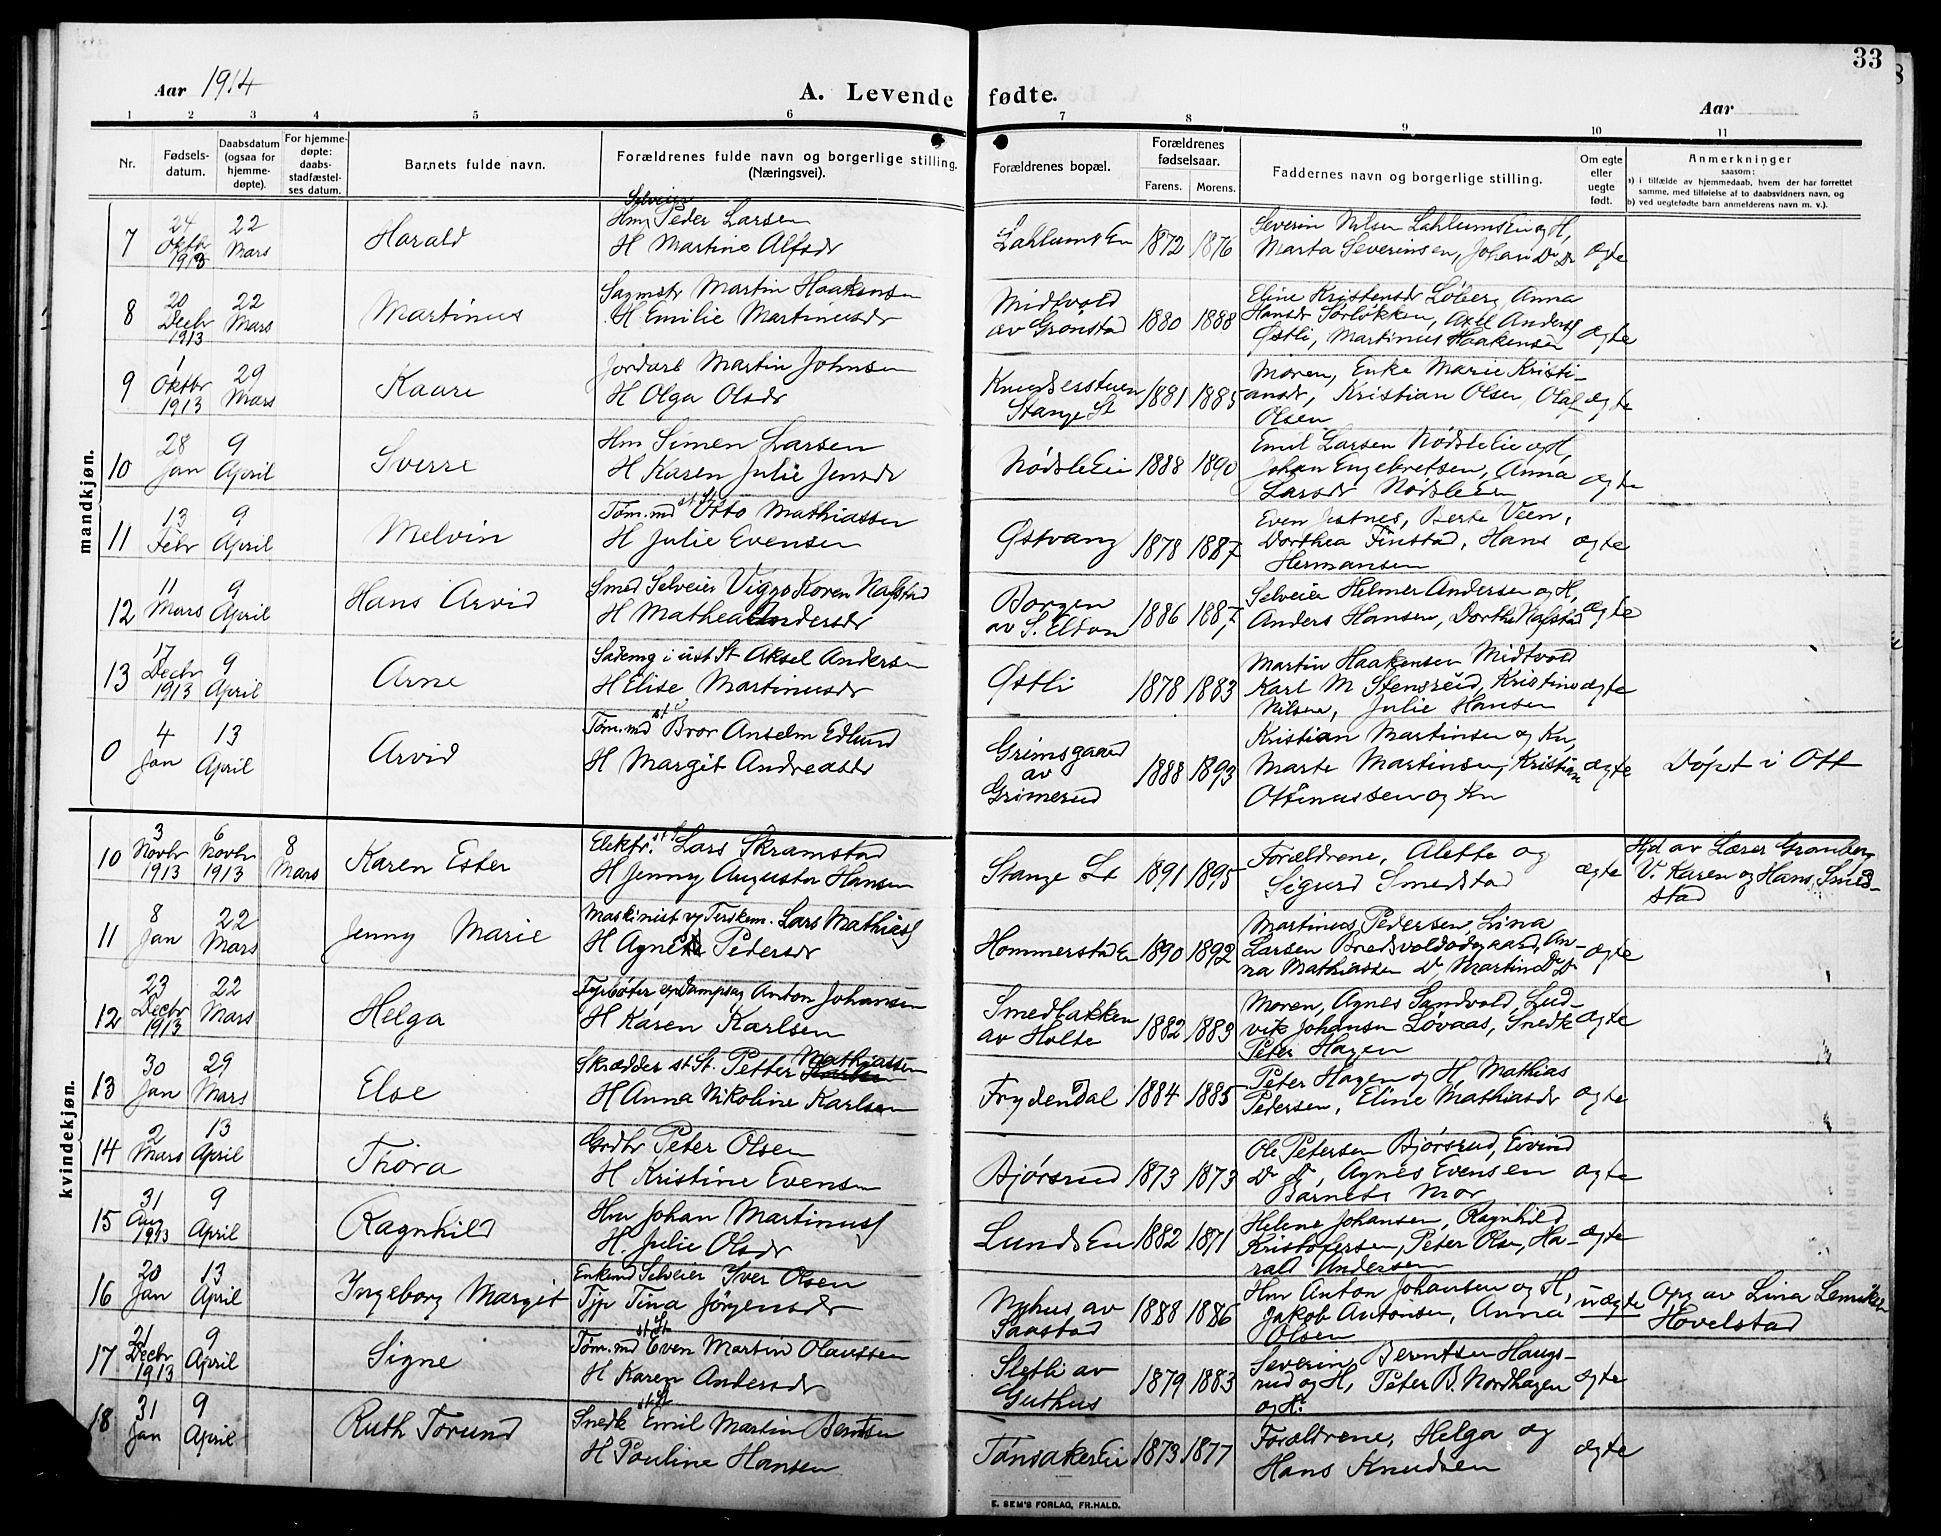 33
Aar 1914
A. Levende fødte.
Aar
1 2 3 4 5 6 7 8 9 10 11
Nr.
Fødsels-
datum.
Daabsdatum
(ogsaa for
hjemme-
døpte).
For hjemme-
døpte:
daabs-
stadfæstel-
ses datum.
Barnets fulde navn.
Forældrenes fulde navn og borgerlige stilling.
(Næringsvei).
Forældrenes bopæl.
Forældrenes
fødselsaar.
Farens. Morens.
Faddernes navn og borgerlige stilling.
Om egte
eller
uegte
født.
Anmerkninger
saasom:
a) i tilfælde av hjemmedaab, hvem der har forrettet
samme, med tilføielse af to daabsvidners navn, og
b) ved uegtefødte barn anmelderens navn m. v.).
mandkjøn.
7
24
Oktbr
1913
22
Mars
Harald
Selveier
Hm Peder Larsen
H Martine Alfsdr
LahlumsEn
1872 1876
Severin Nilsen LahlumsEn og H,
Marta Severinsen, Johan Do Do
ægte
8
20
Decbr
1913
22
Mars
Martinus
Sagmstr Martin Haakensen
H Emilie Martinusdr
Midtvold
av Grønstad
1880 1888
Eline Kristensdr Løberg, Anna
Hansdr Sørløkken, Axel Anders
Østli, Martinus Haakensen
ægte
9
1
Oktbr
1913
29
Mars
Kaare
Jordarb Martin Johnsen
H Olga Olsdr
Knudsestuen
Stange St
1881 1885
Moren, Enke Marie Kristi-
ansdr, Kristian Olsen, Olaf
Olsen
ægte
10
28
Jan
9
April
Sverre
Hm Simen Larsen
H Karen Julie Jensdr
NødsleEie
1888 1890
Emil Larsen NødsleEie og H,
Johan Engebretsen, Anna
Larsdr NødsleEie
ægte
11
13
Febr
9
April
Melvin
st St
Tøm.md Otto Mathiassen
H Julie Evensen
Østvang
1878 1887
Even Jestnes, Berte Veen,
Dorthea Finstad, Hans
Hermansen
ægte
12
11
Mars
9
April
Hans Arvid
Smed Selveier Viggo Koren Nafstad
H Mathea Andersdr
Borgen
av S. Elton
1886 1887
Selveier Helmer Andersen og H,
Anders Hansen, Dorthe Nafstad
ægte
13
17
Decbr
1913
9
April
Arne
Sadmg i ust St Aksel Andersen
H Elise Martinusdr
Østli
1878 1883
Martin Haakensen Midtvold
Karl M Stensrud, Kristine
Nilsen, Julie Hansen
ægte
0
4
Jan
13
April
Arvid
Tøm.md Bror Anselm Edlund
H Margit Andreasdr
Grimsgaard
av
Grimerud
1888 1893
Kristian Martinsen og Kn,
Marte Martinsen, Kristian
Ottinussen og Kn
ægte
Døpt i Ott
kvindekjøn.
10
3
Novbr
1913
6
Novbr
1913
8
Mars
Karen Ester
st St
Elektr. Lars Skramstad
H Jenny Augusta Hansen
Stange St
1891 1895
Forældrene, Alette og
Sigurd Smedstad
ægte
Hjd av Lærer Granberg
V. Karen og Hans Smed-
stad
11
8
Jan
22
Mars
Jenny Marie
Maskinist vg Terskem. Lars Mathias
H Agnete Pedersdr
HommerstadEn
1890 1892
Martinus Pedersen, Lina
Larsen Bredsvoldødegaard, An-
na Mathiassen Do Martin Do Do
ægte
12
23
Decbr
1913
22
Mars
Helga
Fyrbøter vg Dampsag Anton Johansen
H Karen Karlsen
Smedbakken
av Holte
1882 1883
Moren, Agnes Sandvold, Lud-
vik Johansen Løvaas, Snedk
Peter Hagen
ægte
13
30
Jan
29
Mars
Else
Skrædder st St. Petter Mathiassen
H Anna Nikoline Karlsen
Frydendal
1884 1885
Peter Hagen og H Mathias
Pedersen, Eline Mathiasdr
ægte
14
2
Mars
13
April
Thora
Gordbr Peter Olsen
H Kristine Evensen
Bjørsrud
1873 1873
Ole Petersen Bjørsrud, Eivind
Do Do, Agnes Evensen
Barnets Mor
ægte
15
31
Aug
1913
9
April
Ragnhild
Hm Johan Martinus
H. Julie Olsdr
LundsEn
1882 1871
Helene Johansen, Ragnhild
Kristofersen, Peter Olsen, Ha-
rald Andersen
ægte
16
20
Jan
13
April
Ingeborg Margit
Enkmd Selveier Iver Olsen
Tjp Tina Jørgensdr
Nyhus av
Saastad
1888 1886
Hm Anton Johansen og H,
Jakob Antonsen, Anna
Olsen
uægte
Opg av Lina Lemiken
Hovelstad
17
21
Decbr
1913
9
April
Signe
st St
Tøm.md Even Martin Olaussen
H Karen Andersdr
Sletli av
Guthus
1879 1883
Severin Berntsen Haugs-
rud og H, Peter B. Nordhagen
og H.
ægte
18
31
Jan
9
April
Ruth Torund
st St
Snedk Emil Martin Berntsen
H Pauline Hansen
TønsakerEie
1873 1877
Forældrene, Helga og
Hans Knudsen
ægte
E. SEM'S FORLAG, FR.HALD.